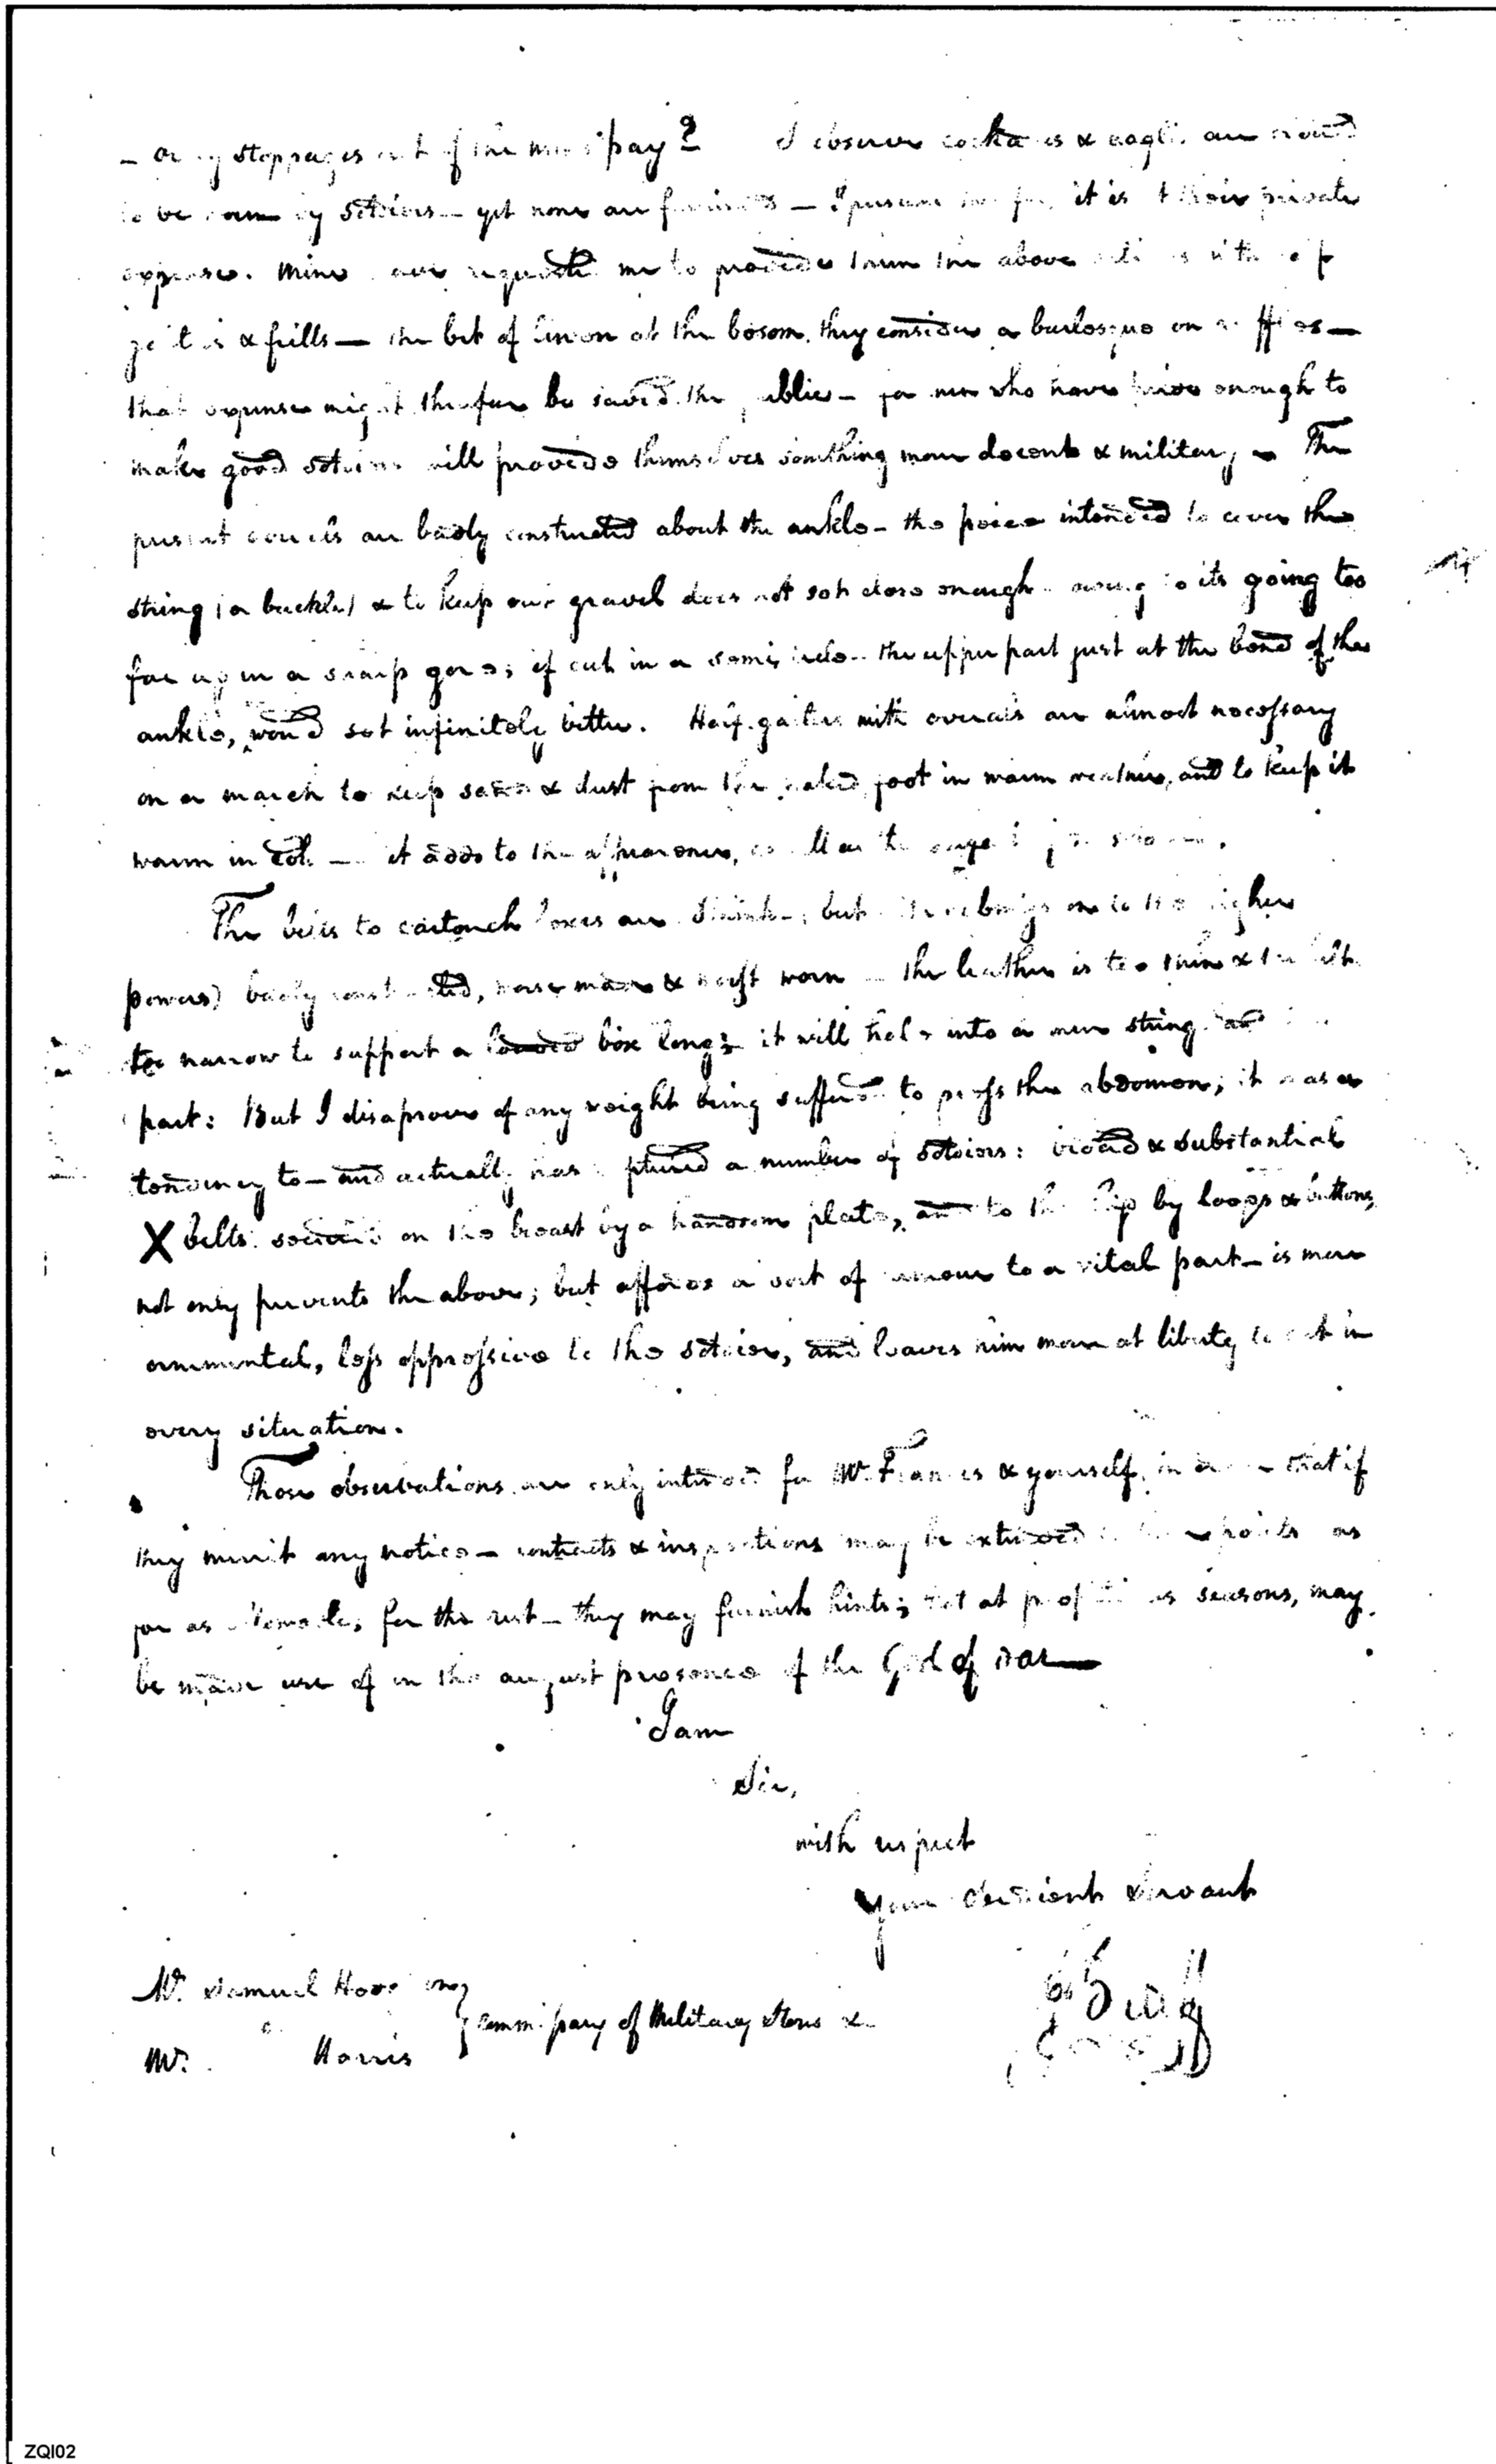 – or by stoppages out of the men's pay? I observe cockades & eagles are
to be worn by soldiers – yet none are furnished – I presume it is their private
expense. Mine have requested me to provide them the above
& frills — the bit of linen at the bosom, they consider a burlesque on ruffles —
that expense might therefore be saved the public – for men who have pride enough to
make good soldiers will provide themselves something more decent & military – The
present overalls are badly constructed about the ankle – the peice intended to cover the
string (or buckle) & to keep out gravel does not set close enough – owing to its going too
far up in a sharp gore; if cut in a semicircle – the upper part just at the bend of the
ankle, would set infinitely better. Half-gaiters with overalls are almost necessary
on a march to keep sand & dust from the naked foot in warm weather, and to keep it
warm in cold — it adds to the appearance, as well as the
The belts to cartouch boxes are I think, but belongs to the higher
powers) badly constructed, worse made & worst worn – the leather is too thin & the belt
too narrow to support a loaded box long; it will into a mere string
part: But I disaprove of any weight being suffered to press the abdomen; it has a
tendency to – and actually has ruptured a number of soldiers: broad & substantial
X belts secured on the breast by a handsome plate, and to the hip by loops & buttons,
not only prevents the above; but affords a sort of armour to a vital part – is more
ornamental, less oppressive to the soldier, and leaves him more at liberty to act in
every situation.
These observations are only intended for Mr. Francis & yourself, in order that if
they merit any notice – contracts & inspections may be extended as
for as the rest – they may furnish hints; that at propitious seasons, may
be made use of in the august presence of the God of War —
I am
Sir,
with respect
your obedient servant
Mr. Samuel Hodgdon
Commissary of Military Stores &
Mr. Harris
ZQI02